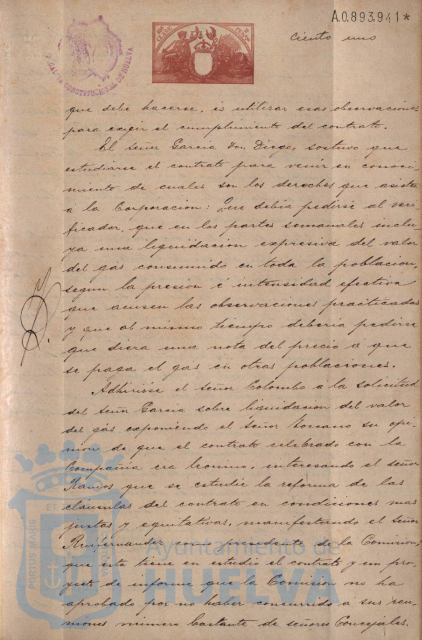 A.0.893,941*
ciento uno
que debe hacerse, es utilizar esas observaciones
para exigir el cumplimiento del contrato.
El Señor Garcia Don Diego, sostuvo que
estudiarse el contrato para venir en conoci-
miento de cuales son los derechos que asisten
a la Corporacion: Que debia pedirse al veri-
ficador, que en los partes semanales inclu-
ya una liquidacion expresiva del valor
del gas consumido en toda la poblacion,
segun la presion é intensidad efectiva
que acusen las observaciones practicadas
y que al mismo tiempo deberia pedirse
que diera una nota del precio a que
se paga el gas en otras poblaciones.
Adhirióse el Señor Colombo a la solicitud
del Señor Garcia sobre liquidacion del valor
del gas exponiendo el Señor su opi-
nion de que el contrato celebrado con la
Compañia era leonino, interesando el señor
Ramos que se estudie la reforma de las
cláusulas del contrato en condiciones mas
justas y equitativas, manifestando el Señor
como presidente de la Comision,
que esta tiene en estudio el contrato y un pro-
yecto de informe que la Comision no ha
aprobado por no haber concurrido a sus reu-
niones número bastante de señores Concejales.
PORTUS MARIS
Ayuntamiento de
HUELVA